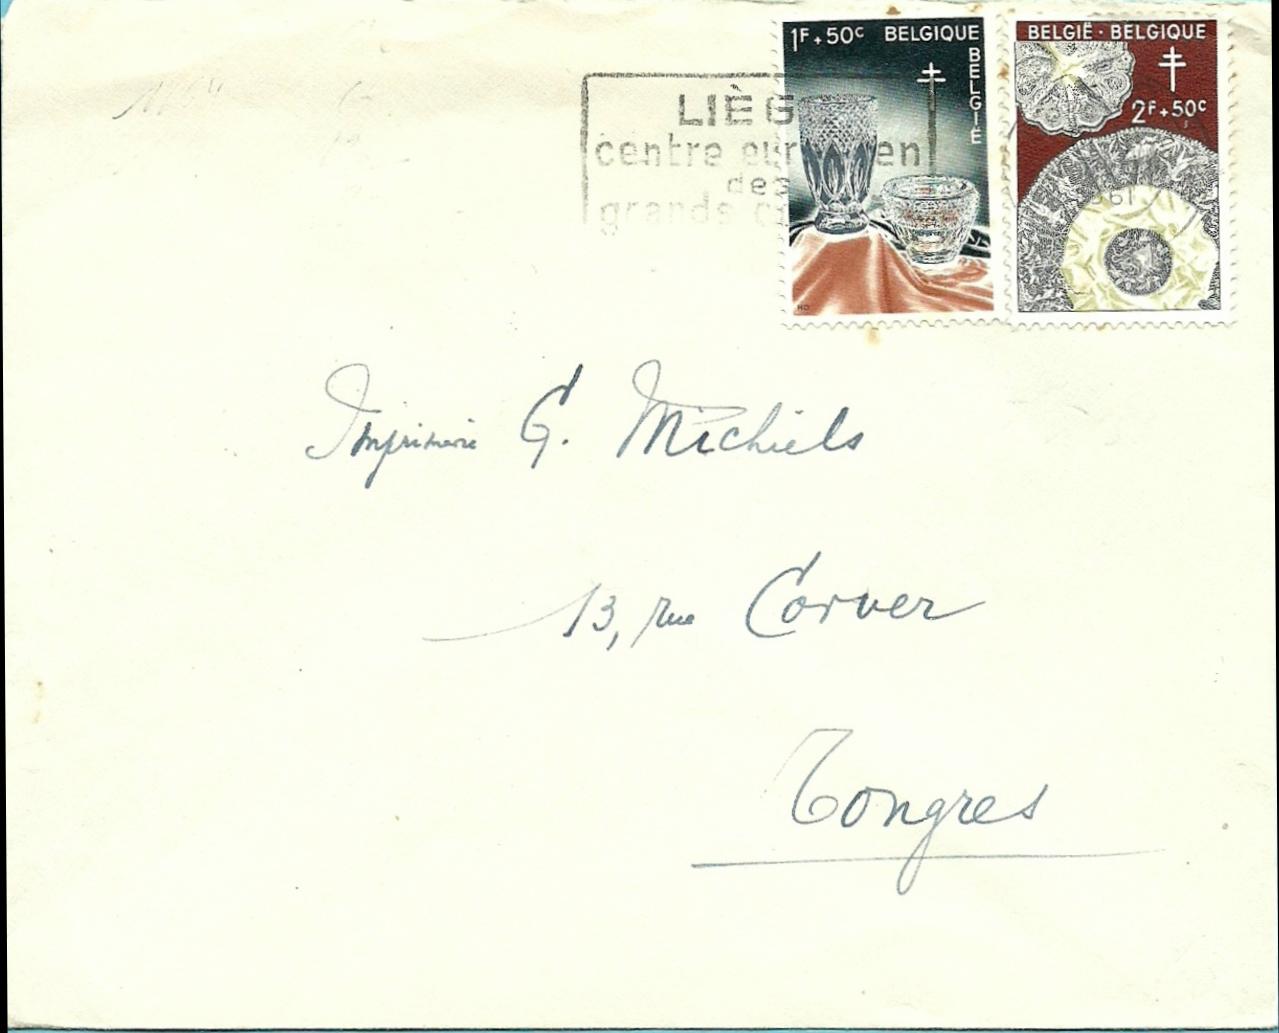 1F + 50c BELGIQUE
BELGIË
BELGIË · BELGIQUE
2F + 50c
LIÈG
centre eur en
des
grands
1961
Imprimerie G. Michiels
13, rue Corver
Tongres